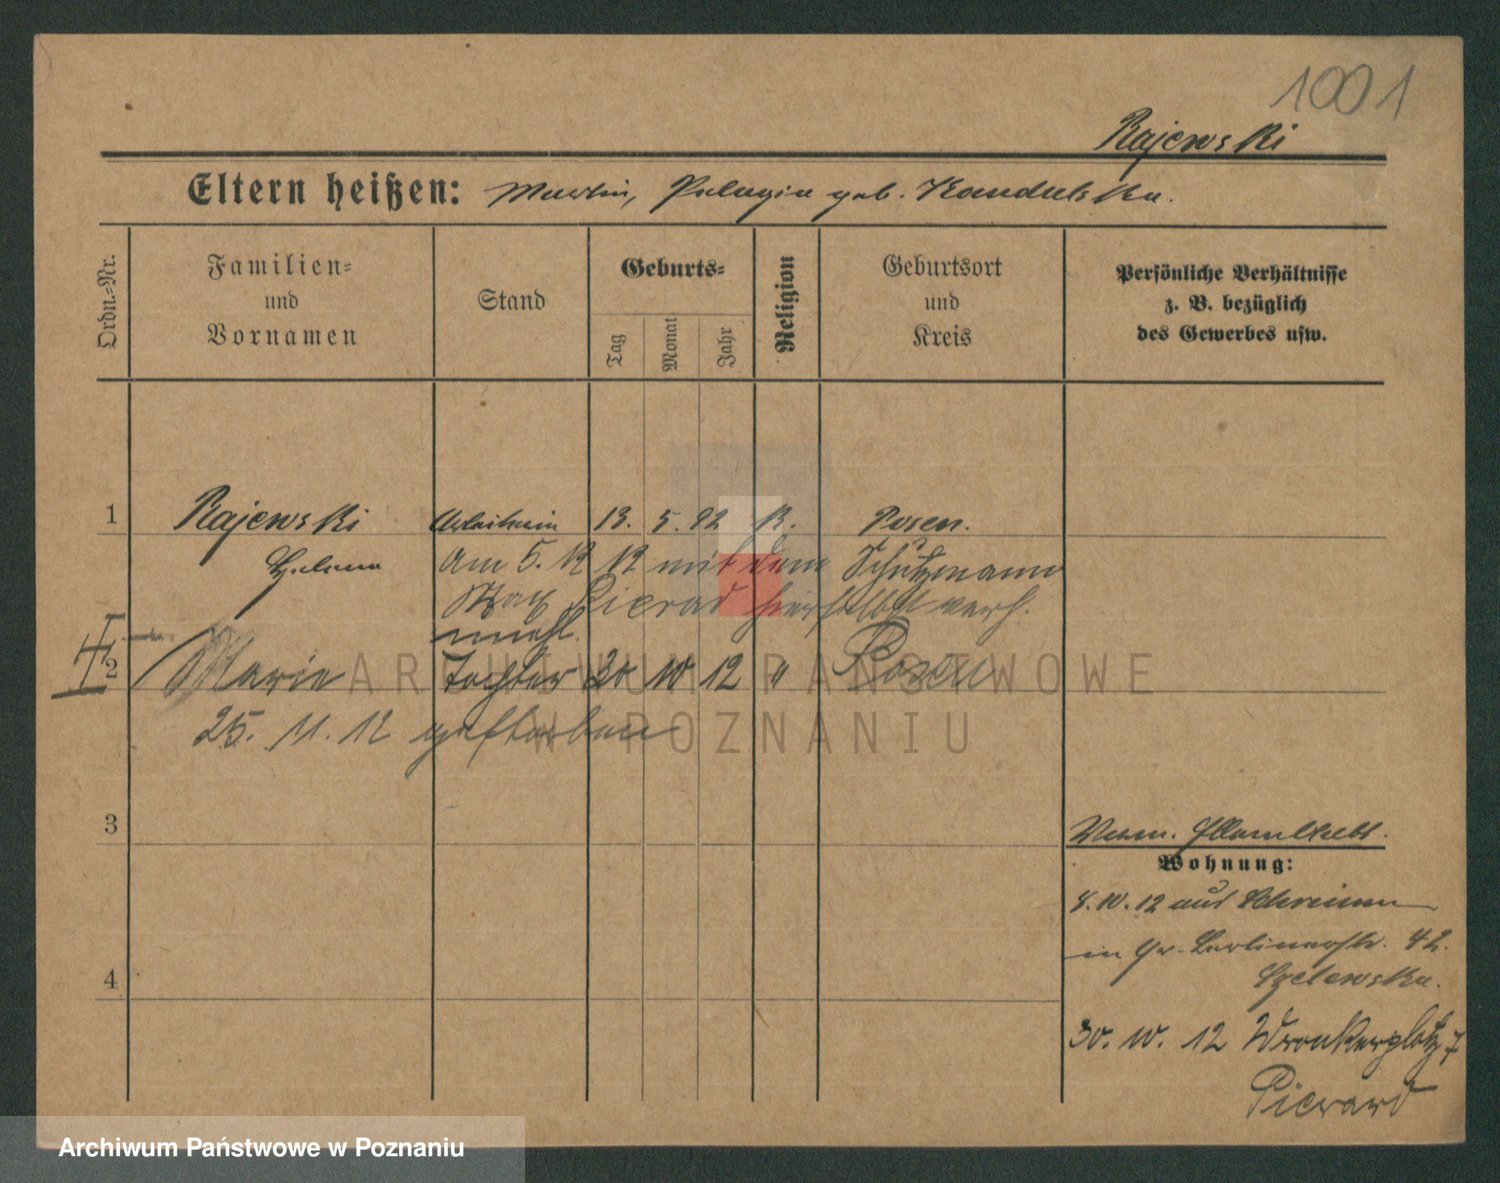 1001
Rajewski
Eltern heißen: Martin, Pelagia geb. Kandulska.
Ordn.-Nr.
Familien-
und
Vornamen
Stand
Geburts-
Tag
Monat
Jahr
Religion
Geburtsort
und
Kreis
Persönliche Verhältnisse
z. B. bezüglich
des Gewerbes usw.
1 Rajewski Arbeiterin 13. 5. 92 K. Posen.
Helene Am 5. 12 12 mit dem Schutzmann
Max Pierard hierselbst verh.
unehl.
2 Marie Tochter 20 10 12 " Posen
25. 11. 12 gestorben
3
Wohnung:
8.10.12 aus Schrimm
in Gr. Berlinerstr. 42.
4
30. 10. 12 Wronkerplatz 7
Pierard
ARCHIWUM PAŃSTWOWE
W POZNANIU
Archiwum Państwowe w Poznaniu